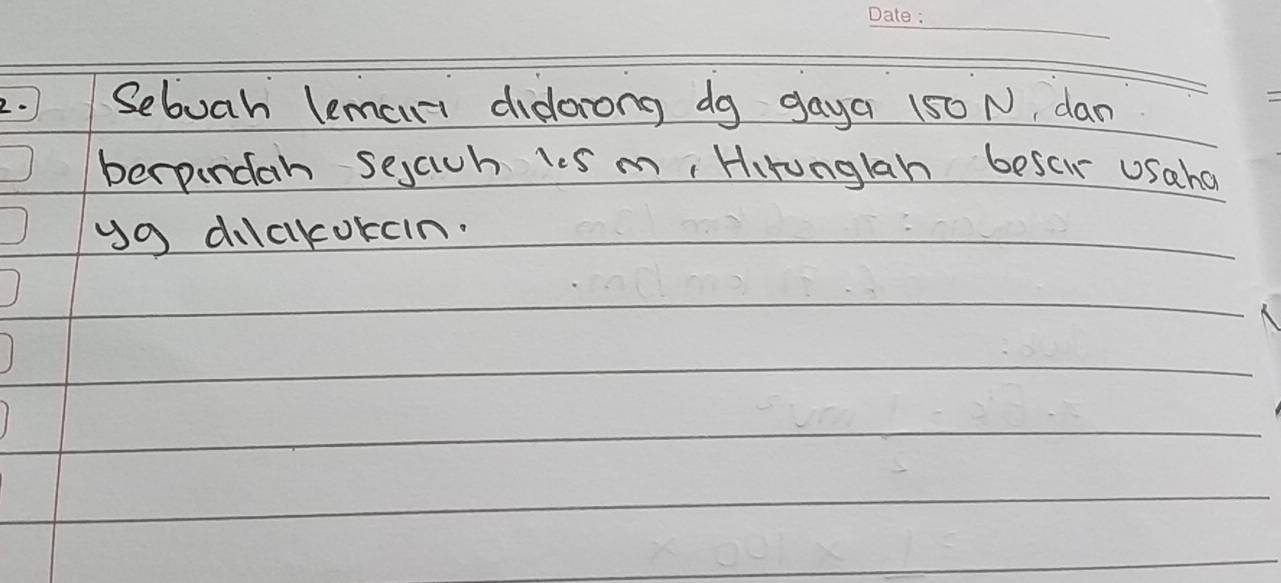 Date :
2. Sebuah lemari didorong dg gaya 150 N, dan
berpindah sejauh 1.5 m, Hitunglah besar usaha
yg dilakukan.